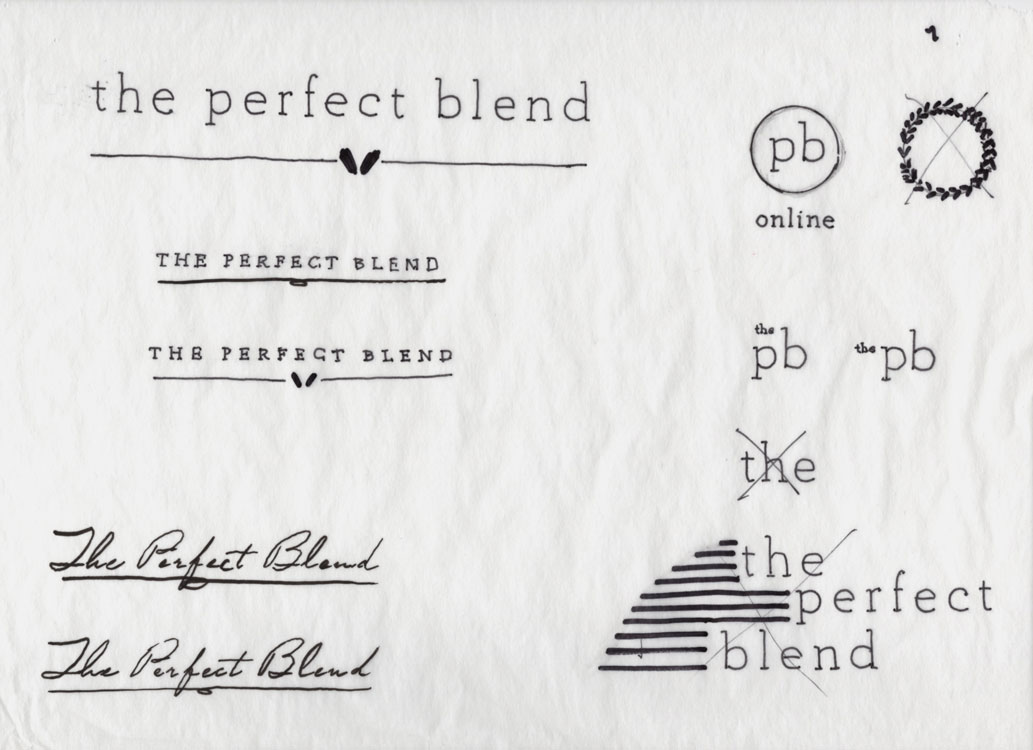 the perfect blend
THE PERFECT BLEND
THE PERFECT BLEND
The Perfect Blend
The Perfect Blend
pb
online
the
pb
the pb
the
the
perfect
blend